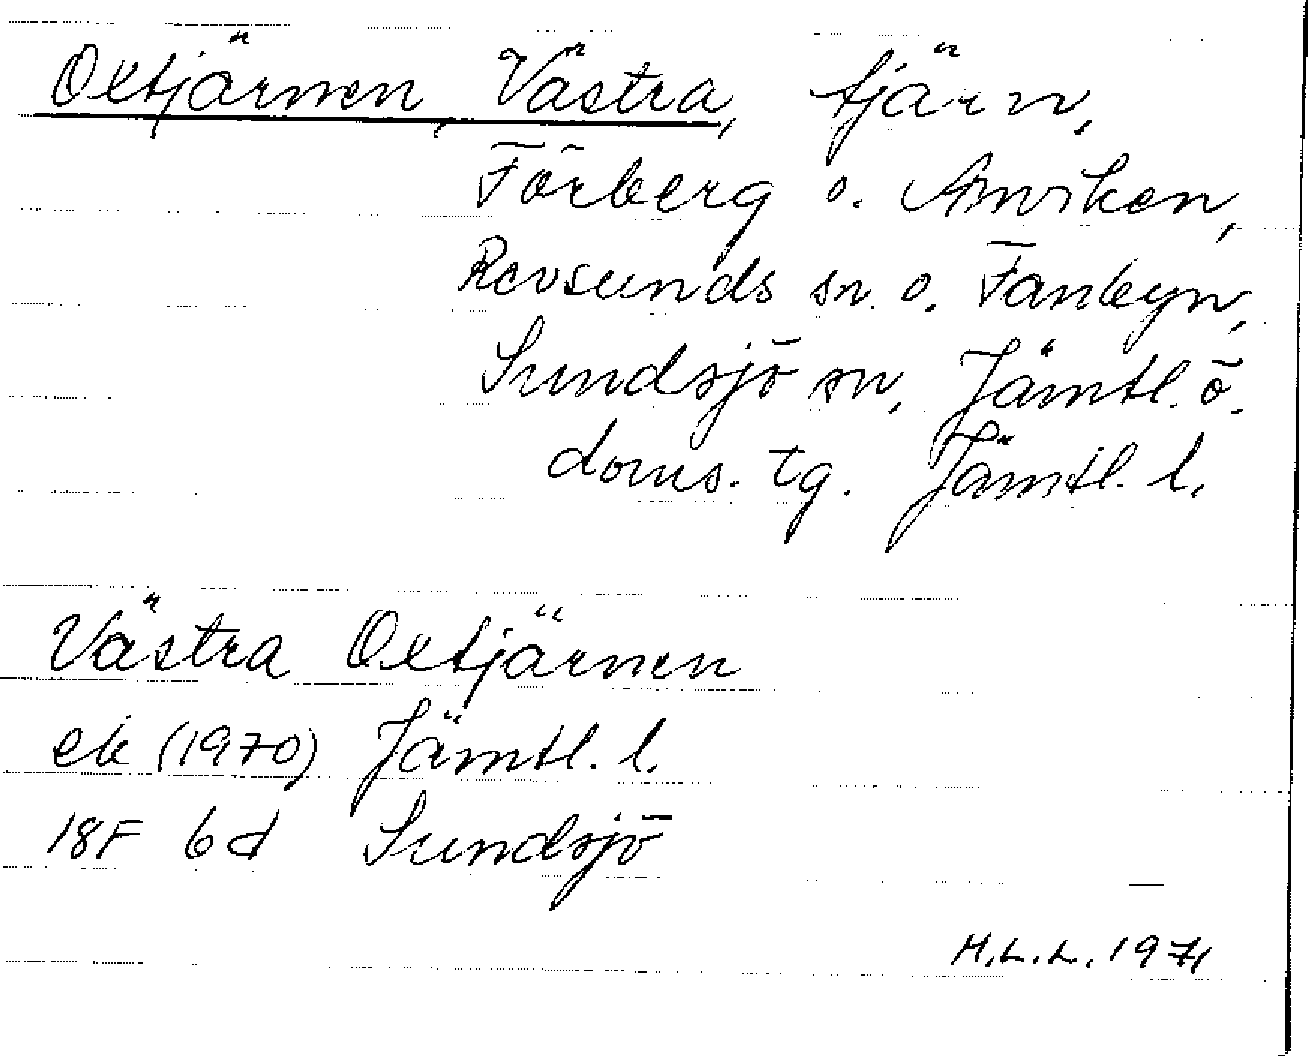 Oxtjärnen, Västra, tjärn,
Förberg o. Anviken,
Revsunds sn. o. Fanbyn,
Sundsjö sn, Jämtl. ö.
doms. tg. Jämtl. l.
Västra Oxtjärnen
ek (1970) Jämtl. l.
18F 6d Sundsjö
H.L.L. 1971